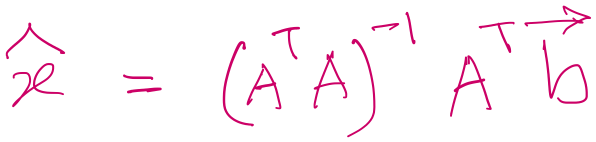 x̂ = (AᵀA)⁻¹ Aᵀ b⃗